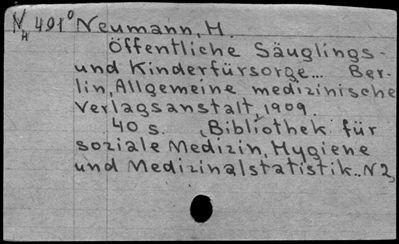 N 491° Neumann, H.
H
Öffentliche Säuglings-
und Kinderfürsorge... Ber-
lin, Allgemeine medizinische
Verlagsanstalt, 1909.
40 s. (Bibliothek für
soziale Medizin, Hygiene
und Medizinalstatistik.. N2)